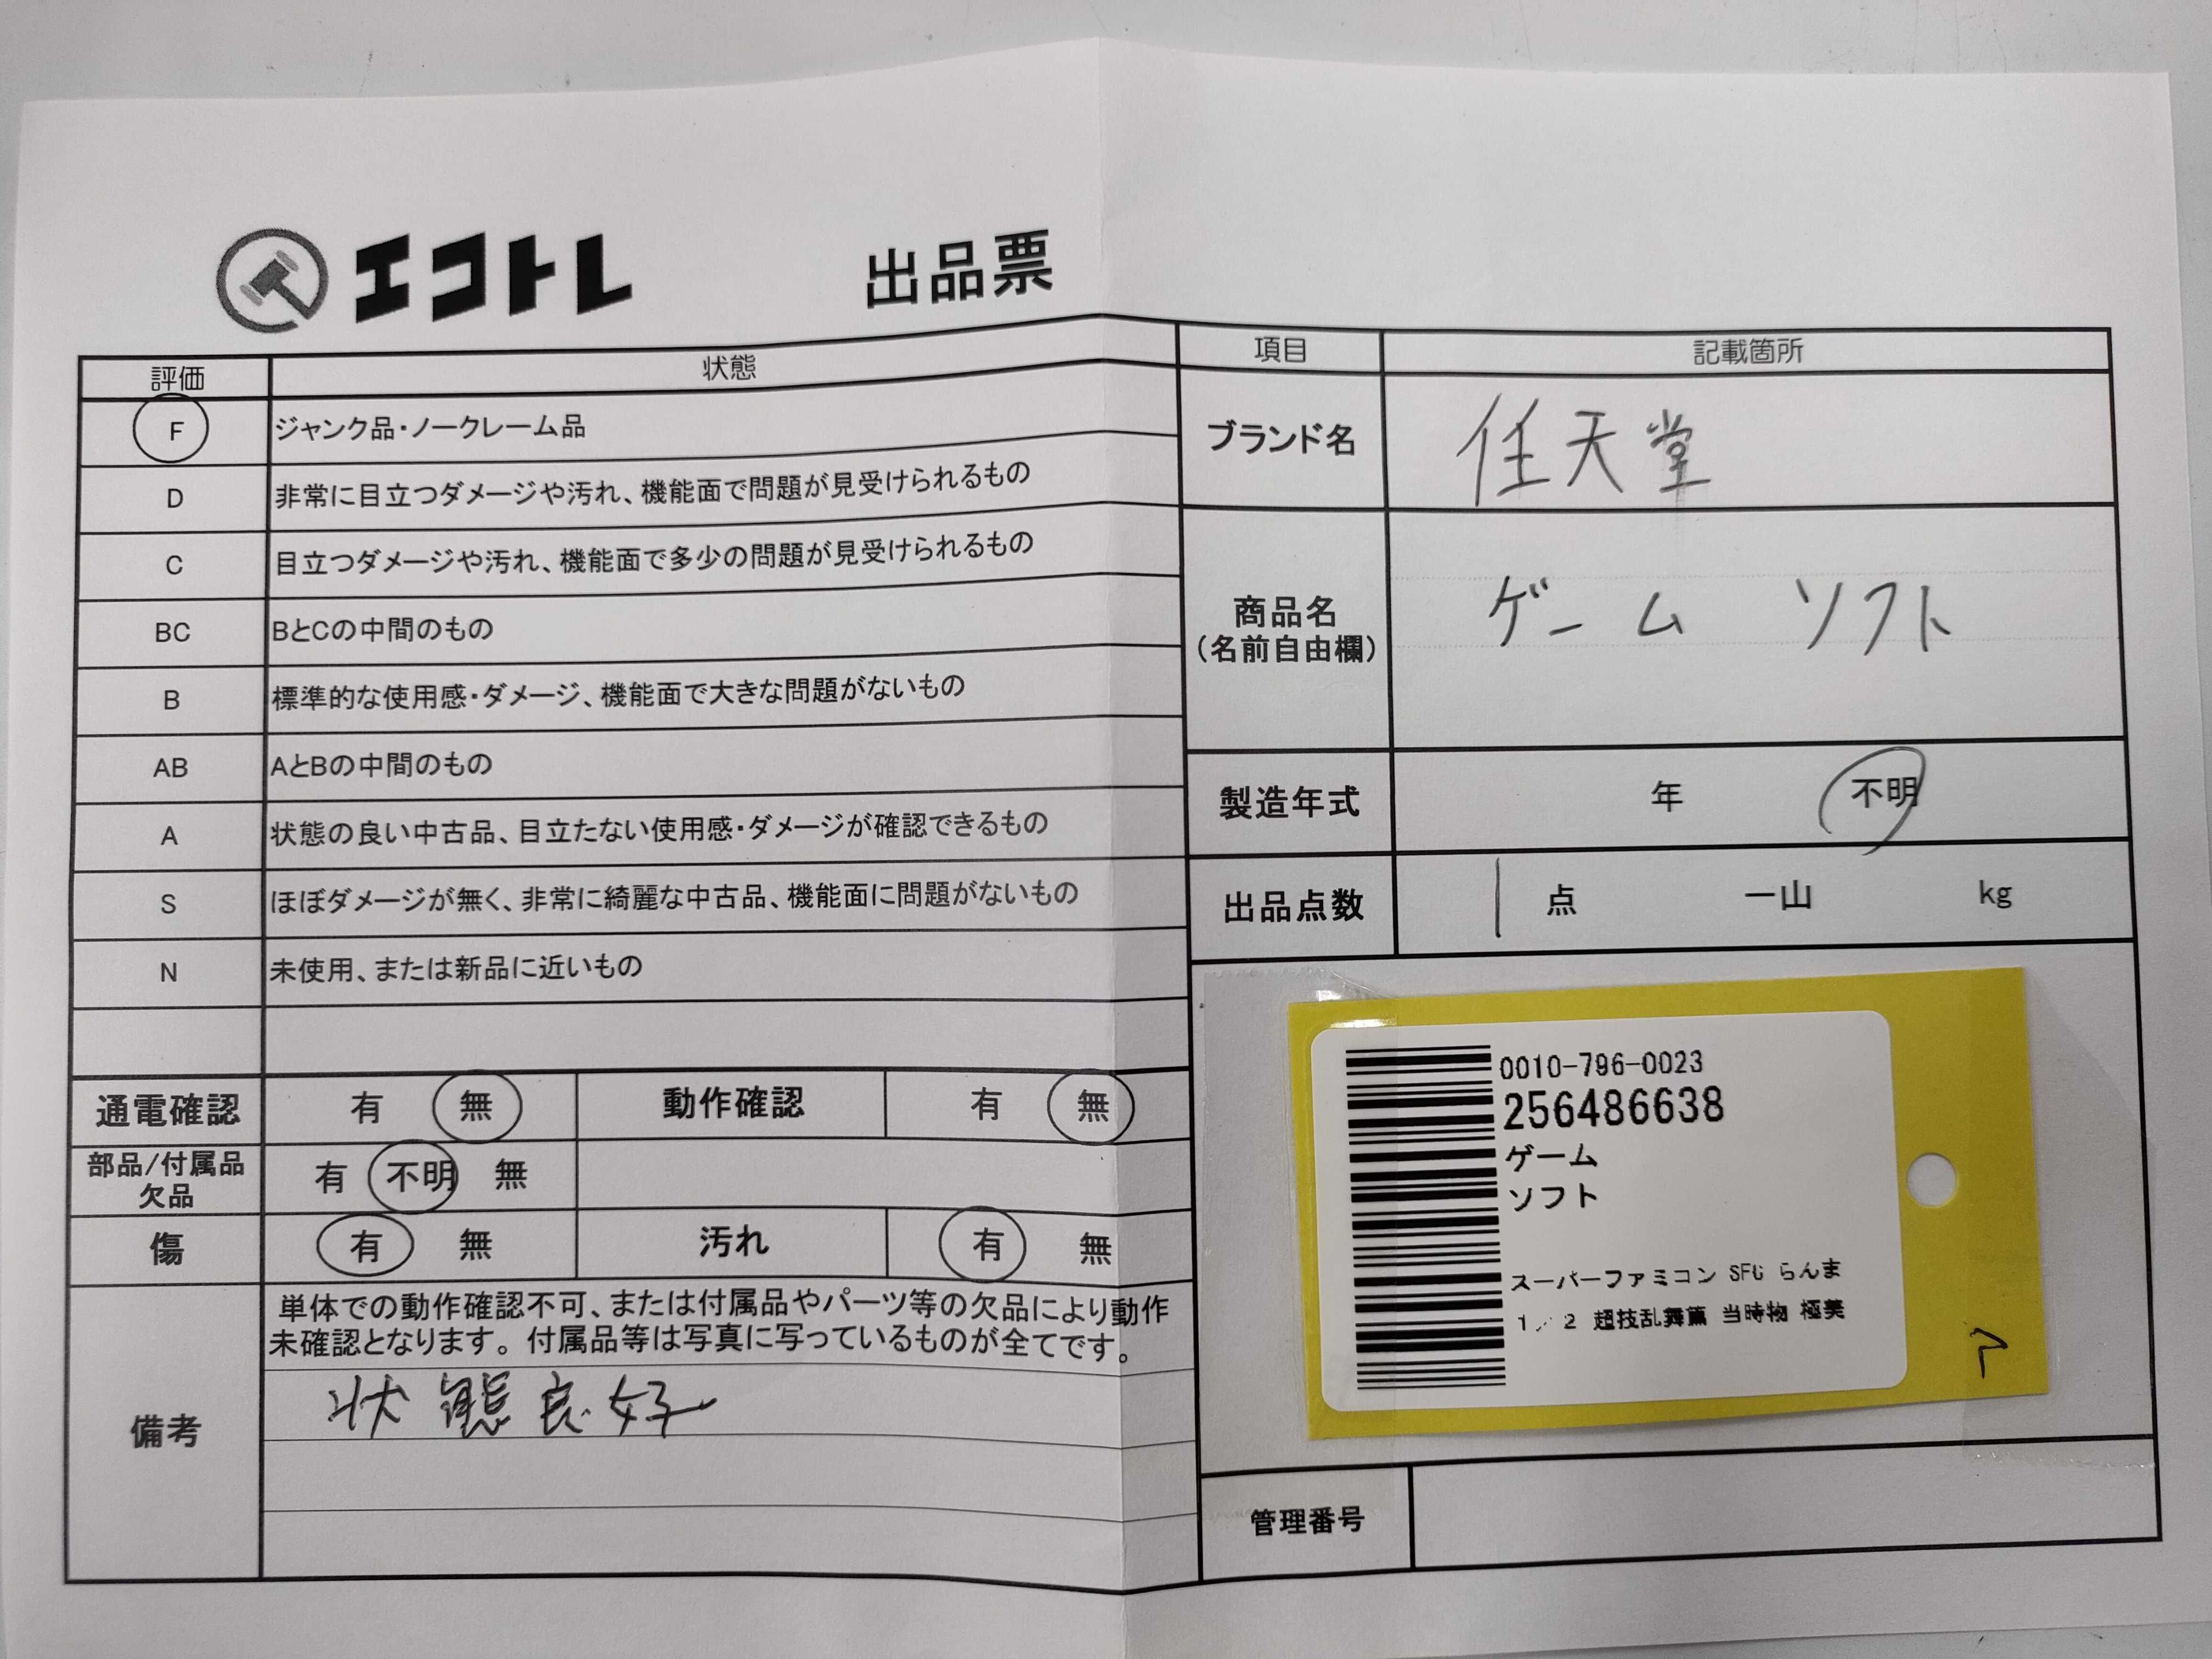 エコトレ 出品票
評価 状態
F ジャンク品・ノークレーム品
D 非常に目立つダメージや汚れ、機能面で問題が見受けられるもの
C 目立つダメージや汚れ、機能面で多少の問題が見受けられるもの
BC BとCの中間のもの
B 標準的な使用感・ダメージ、機能面で大きな問題がないもの
AB AとBの中間のもの
A 状態の良い中古品、目立たない使用感・ダメージが確認できるもの
S ほぼダメージが無く、非常に綺麗な中古品、機能面に問題がないもの
N 未使用、または新品に近いもの
通電確認 有 無 動作確認 有 無
部品/付属品
欠品 有 不明 無
傷 有 無 汚れ 有 無
備考
単体での動作確認不可、または付属品やパーツ等の欠品により動作
未確認となります。付属品等は写真に写っているものが全てです。
状態良好
項目 記載箇所
ブランド名 任天堂
商品名
(名前自由欄) ゲーム ソフト
製造年式 年 不明
出品点数 1 点 一山 kg
0010-796-0023
256486638
ゲーム
ソフト
スーパーファミコン SFC らんま
1/2 超技乱舞篇 当時物 極美
管理番号